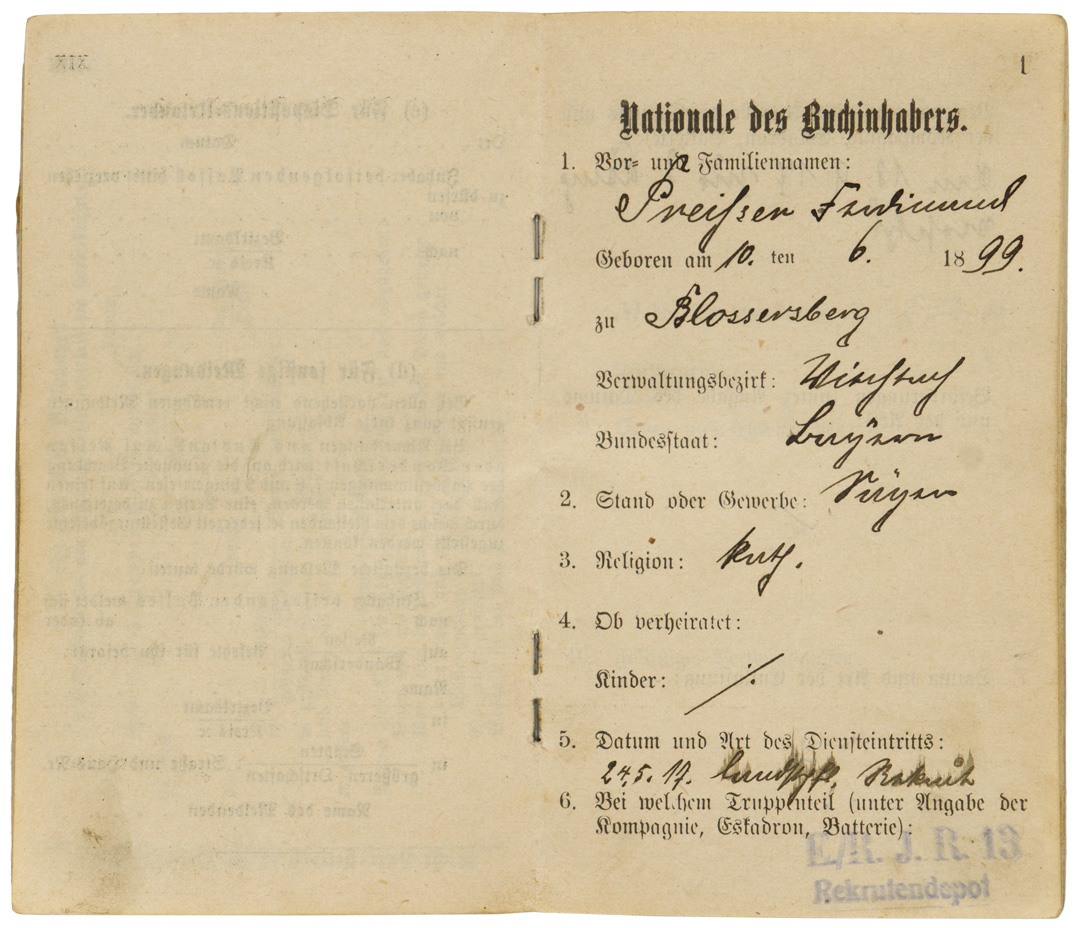 XIX
1
Nationale des Buchinhabers.
1. Vor- und Familiennamen:
Preißer Ferdinand
Geboren am 10. ten 6. 1899.
zu Blossersberg
Verwaltungsbezirk: Viechtach
Bundesstaat: Bayern
2. Stand oder Gewerbe:
3. Religion: kath.
4. Ob verheiratet:
Kinder: ·/·
5. Datum und Art des Diensteintritts:
24.5.17. Landstpfl. Rekrut
6. Bei welchem Truppenteil (unter Angabe der
Kompagnie, Eskadron, Batterie):
E/R. J. R. 13
Rekrutendepot